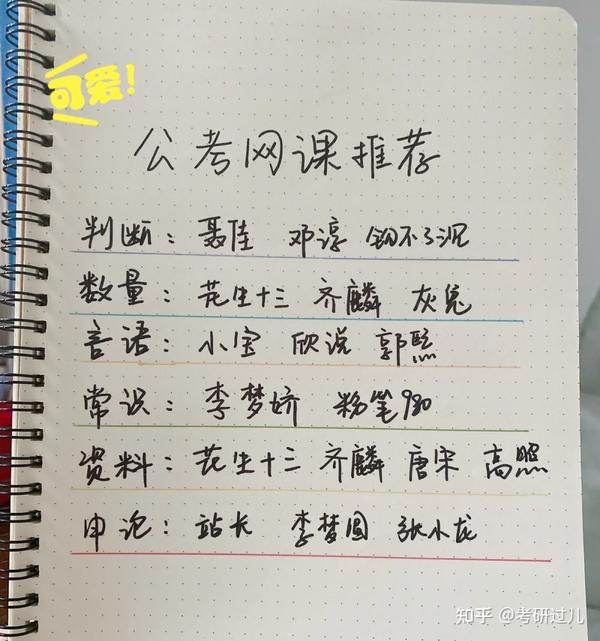 可爱!
公考网课推荐
判断: 聂佳 邓淳 钢不了泥
数量: 花生十三 齐麟 灰兔
言语: 小宝 欣说 郭熙
常识: 李梦娇 粉笔980
资料: 花生十三 齐麟 唐宋 高照
申论: 站长 李梦圆 张小龙
知乎 @考研过儿